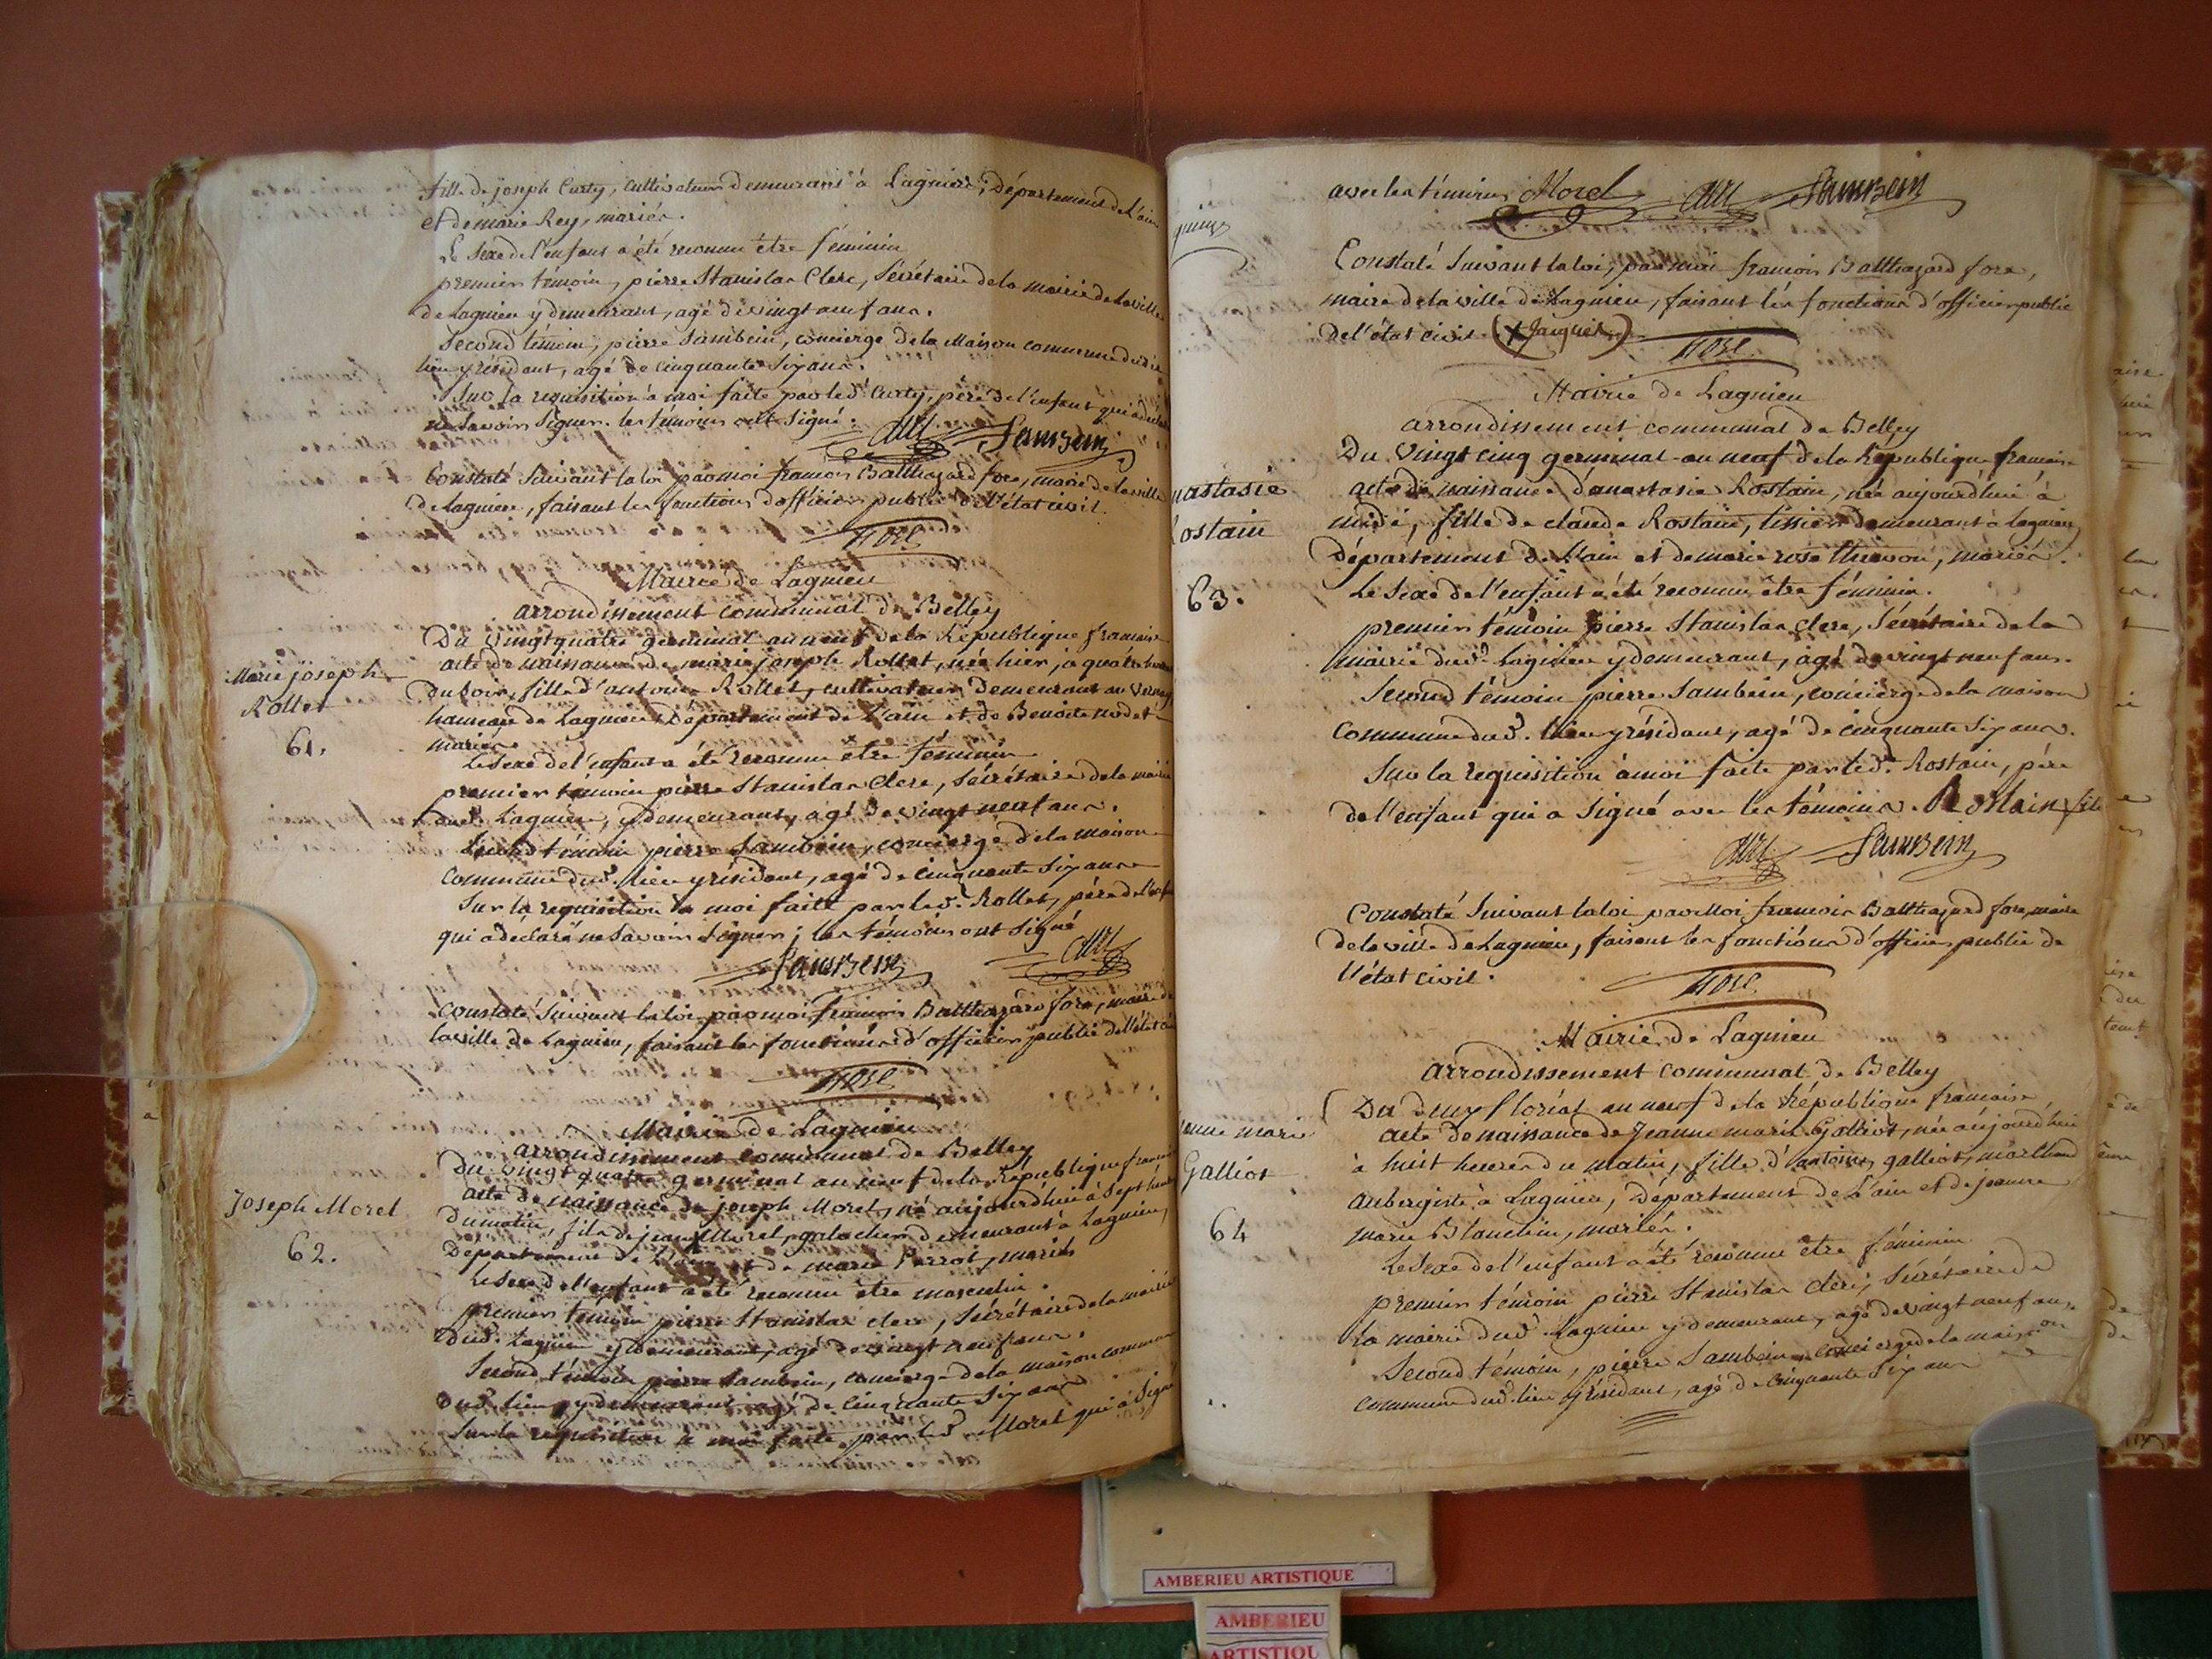 fille de joseph Curty, cultivateur demeurant à Lagnieu, Département de L'ain
et de marie Rey, mariés.
Le Sexe de l'enfant a été reconnu être féminin
premier témoin, pierre Stanislas Clerc, Sécrétaire de la mairie de la ville
de Lagnieu y demeurant, agé de vingt neuf ans.
Second témoin, pierre Sambein, concierge de la Maison commune dud.
lieu y résidant, agé de cinquante Six ans.
Sur la requisition à moi faite par led. Curty, père de l'enfant qui a déclaré
ne Savoir Signer. les témoins ont Signé.
Sambein
Constaté Suivant la loi par moi françois Balthazard fore, maire de la ville
de Lagnieu, faisant les fonctions d'officier public de l'état civil.
fore
Mairie de Lagnieu
arrondissement communal de Belley
Du vingt quatre germinal an neuf de la République française
Marie joseph
Rollet
61.
acte de naissance de marie joseph Rollet, née hier, à quatre heures
du soir, fille d'antoine Rollet, cultivateur demeurant au
hameau de Lagnieu, Département de L'ain et de Benoite
mariés.
Le Sexe de l'enfant a été reconnu être féminin
premier témoin pierre Stanislas Clerc, Sécrétaire de la mairie
dud. Lagnieu, y demeurant, agé de vingt neuf ans.
Second témoin pierre Sambein, concierge de la maison
commune dud. lieu y résidant, agé de cinquante Six ans
Sur la requisition à moi faite par led. Rollet, père de l'enfant
qui a déclaré ne Savoir Signer; les témoins ont Signé
Sambein
Constaté Suivant la loi par moi françois Balthazard fore, maire de
la ville de Lagnieu, faisant les fonctions d'officier public de l'état
fore
Mairie de Lagnieu
arrondissement communal de Belley
Du vingt quatre germinal an neuf de la République
Joseph Morel
62.
acte de naissance de joseph Morel, né aujourd'hui à Sept heures
du matin, fils de jean Morel, galochier demeurant à Lagnieu,
Département de L'ain et de marie Perrot, mariés
Le Sexe de l'enfant a été reconnu être masculin.
premier témoin pierre Stanislas Clerc, Sécrétaire de la mairie
dud. Lagnieu y demeurant, agé de vingt neuf ans.
Second témoin pierre Sambein, concierge de la maison commune
dud. lieu, y demeurant agé de cinquante Six ans
Sur la requisition à moi faite par led. Morel qui a Signé
avec les témoins Morel Sambein
Constaté Suivant la loi, par moi françois Balthazard fore,
maire de la ville de Lagnieu, faisant les fonctions d'officier public
de l'état civil.
fore
Mairie de Lagnieu
arrondissement communal de Belley
Du vingt cinq germinal an neuf de la République française
nastasie
ostain
63.
acte de naissance d'anastasie Rostain, née aujourd'hui à
midi, fille de claude Rostain, tissier demeurant à Lagnieu
Département de L'ain et de marie rose, mariés.
Le Sexe de l'enfant a été reconnu être féminin.
premier témoin pierre Stanislas Clerc, Sécrétaire de la
mairie dud. Lagnieu y demeurant, agé de vingt neuf ans.
Second témoin pierre Sambein, concierge de la maison
commune dud. lieu y résidant, agé de cinquante Six ans.
Sur la requisition à moi faite par led. Rostain, père
de l'enfant qui a Signé avec les témoins. Rostain fils
Sambein
Constaté Suivant la loi par Moi françois Balthazard fore, maire
de la ville de Lagnieu, faisant les fonctions d'officier public de
l'état civil.
fore
Mairie de Lagnieu
arrondissement communal de Belley
Du deux floréal an neuf de la République française,
anne marie
Galliot
64
acte de naissance de Jeanne marie Galliot, née aujourd'hui
à huit heures du matin, fille d'antoine galliot, marchand
aubergiste à Lagnieu, Département de L'ain et de jeanne
marie Blanchin, mariés.
Le Sexe de l'enfant a été reconnu être féminin
premier témoin pierre Stanislas Clerc, Sécrétaire de
la mairie dud. Lagnieu y demeurant, agé de vingt neuf ans.
Second témoin, pierre Sambein, concierge de la maison
commune dud. lieu y résidant, agé de cinquante Six ans
AMBERIEU ARTISTIQUE
AMBERIEU
ARTISTIQU